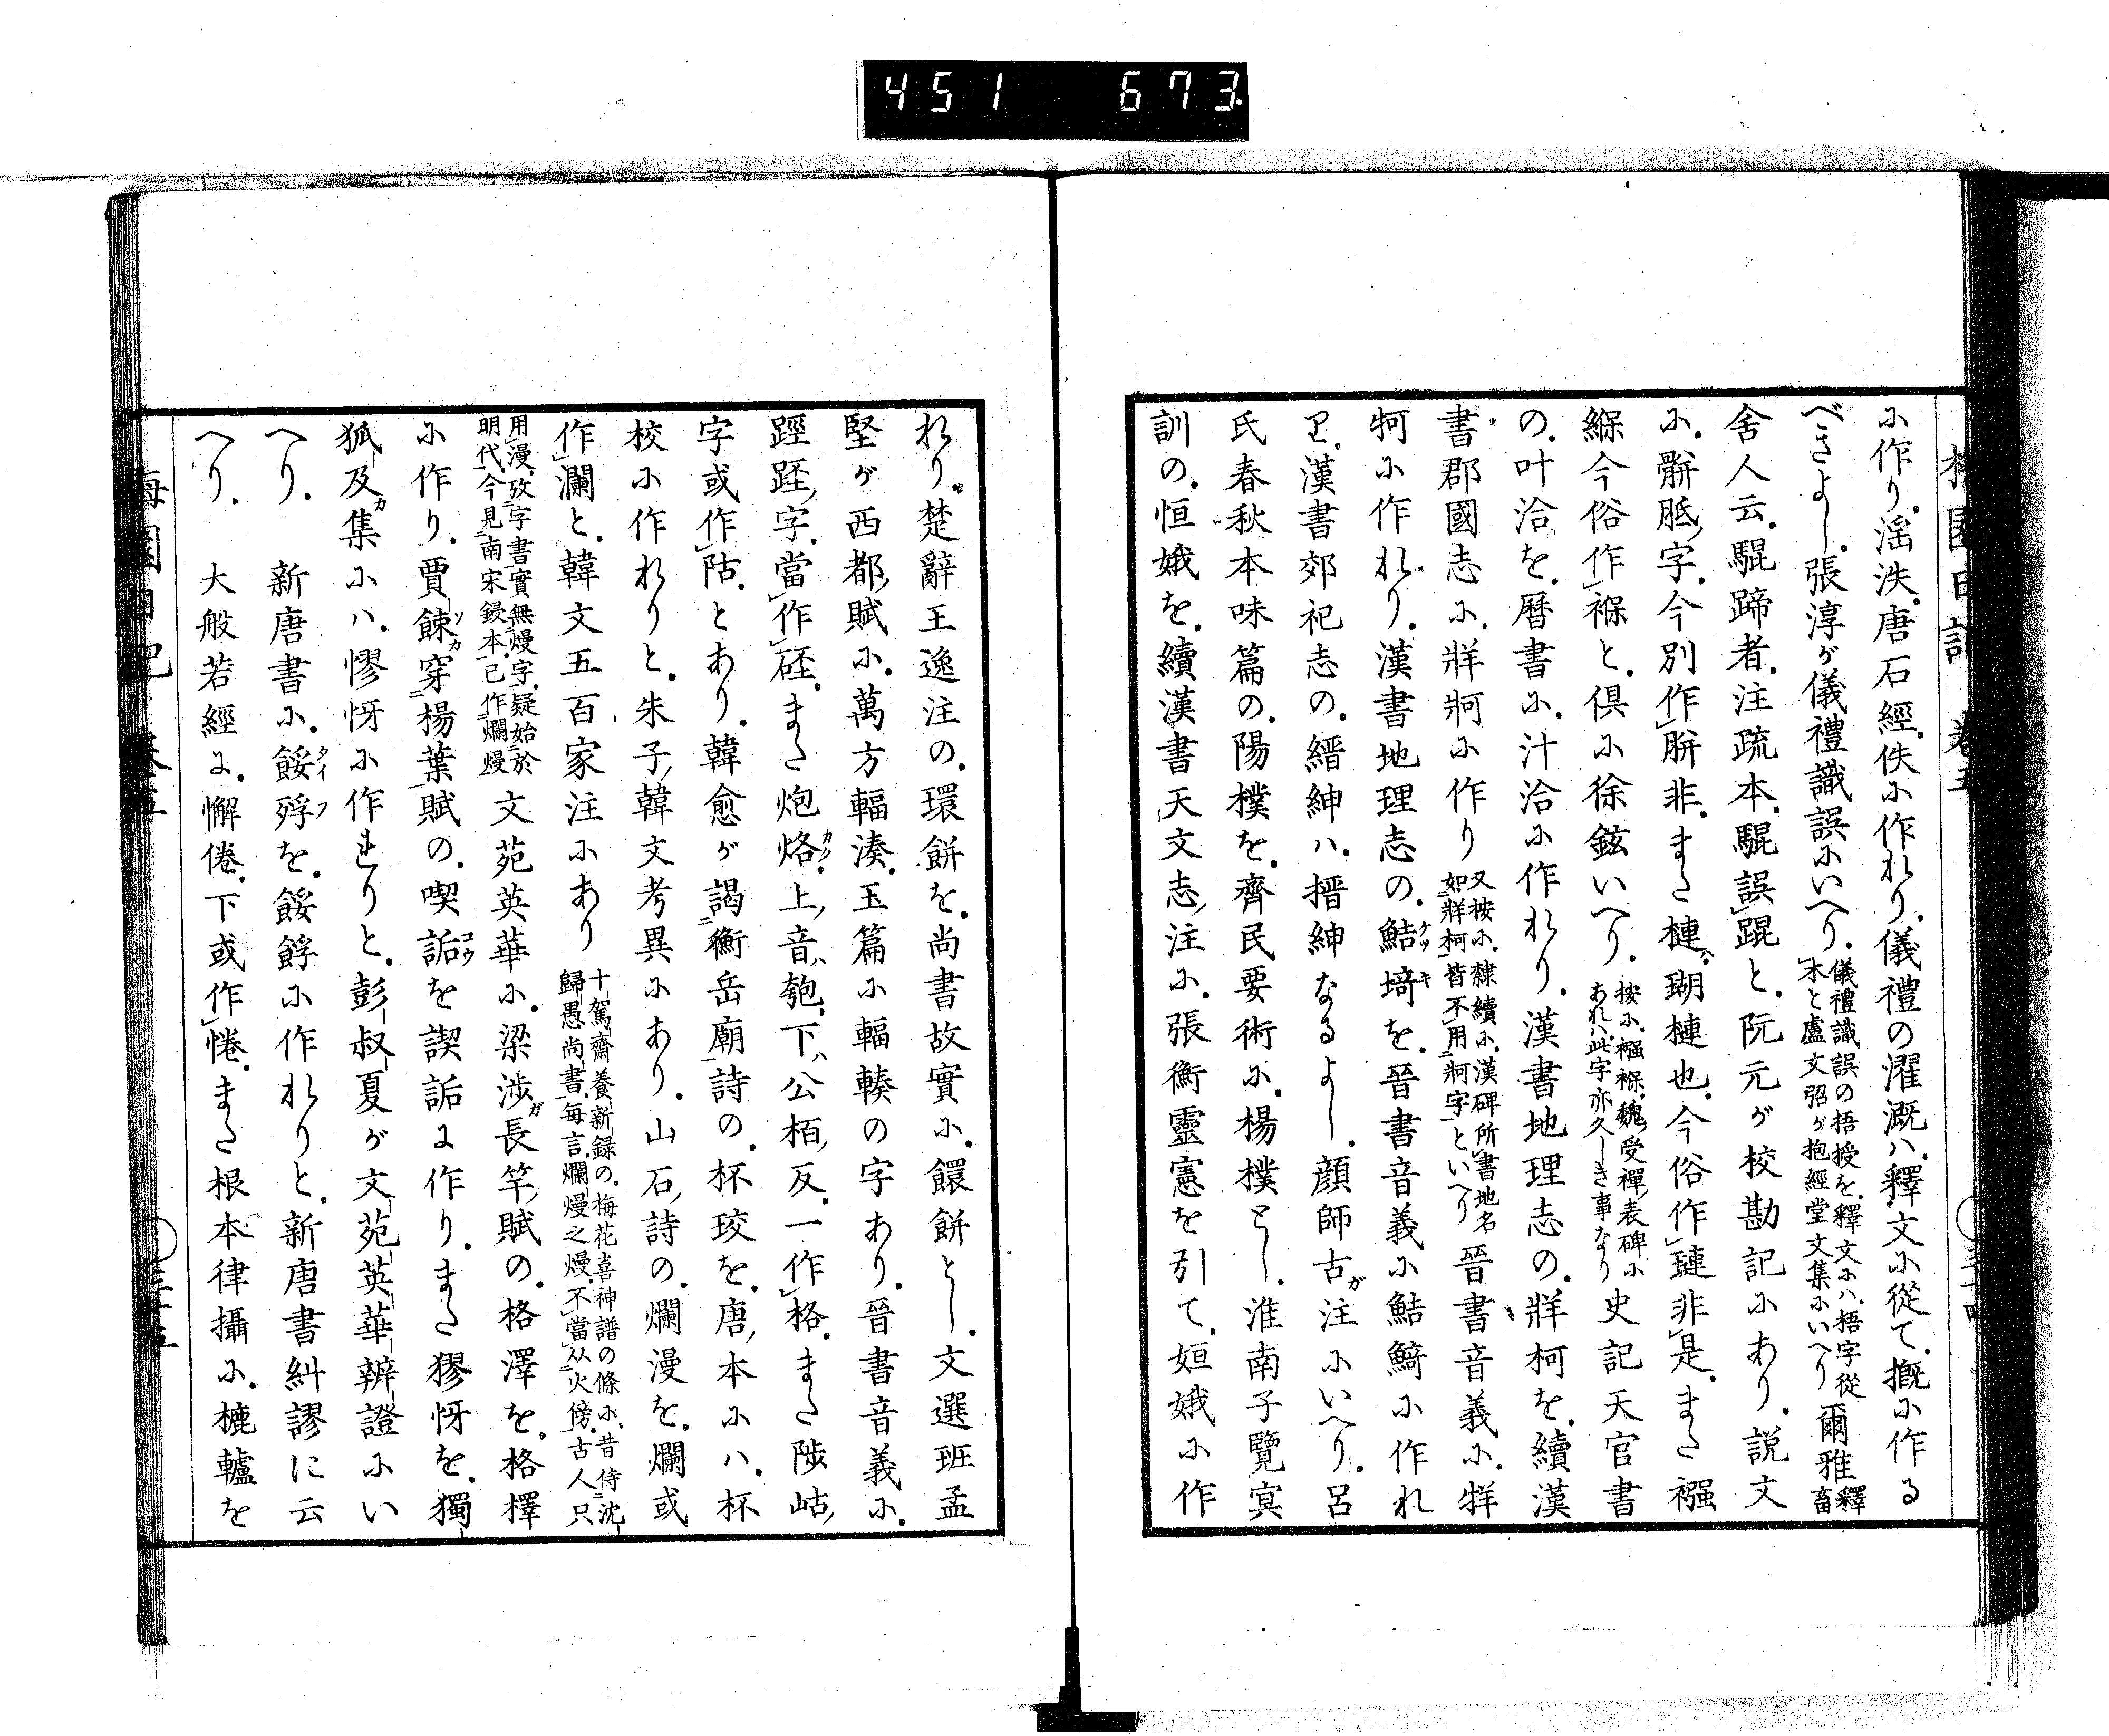 451 673
に作り。滛泆。唐石經。佚に作れり。儀禮の濯漑ハ。釋文に從て。摡に作る
べきよし。張淳が儀禮識誤にいへり。儀禮識誤の捂授を。釋文にハ。梧字從
木と盧文弨が抱經堂文集にいへり 爾雅釋畜
舍人云。騉蹄者。注疏本。騉誤踶と。阮元が校勘記にあり。說文
に。骿胝字。今別作胼非。また槤。瑚槤也。今俗作璉非是。また襁
緥今俗作褓と。俱に徐鉉いへり。按に。襁褓。魏受禪表碑に
あれハ。此字亦久しき事なり 史記天官書
の。叶洽を。曆書に。汁洽に作れり。漢書地理志の。牂柯を。續漢
書郡國志に。牂牁に作り 又按に。隸續に。漢碑所書地名
如牂柯皆不用牁字といへり 晉書音義に。牂
牁に作れり。漢書地理志の。鮚埼を。晉書音義に鮚鮚に作れ
り。漢書郊祀志の。縉紳ハ。搢紳なるよし。顏師古が注にいへり。呂
氏春秋本味篇の。陽樸を。齊民要術に。楊樸とし。淮南子覽冥
訓の。恒娥を。續漢書天文志注に。張衡靈憲を引て。姮娥に作
れり。楚辭王逸注の。環餅を。尚書故實に。饌餅とし。文選班孟
堅が西都賦に。萬方輻湊。玉篇に輻輳の字あり。晉書音義に。
踁踁字。當作硜。また炮烙。上音匏。下公栢反。一作格。また陟岵
字或作阽。とあり。韓愈が謁衡岳廟詩の。杯珓を。唐本にハ。杯
校に作れりと。朱子韓文考異にあり。山石詩の。爛漫を。爛或
作瀾と。韓文五百家注にあり 十駕齋養新録の。梅花喜神譜の條に。昔侍沈
歸愚尚書。每言爛熳之熳。不當从火傍。古人只
用漫。攷字書實無熳字。疑始於
明代。今見南宋鋟本。已作爛熳 文苑英華に。梁涉長竿賦の。格澤を。格檡
に作り。賈餗穿楊葉賦の。喫詬を謑詬に作り。また㺒㤉を。獨
狐及集にハ。憀㤉に作まりと。彭叔夏が文苑英華辨證にい
へり。 新唐書に。餒殍を。餒餑に作れりと。新唐書糾謬に云
へり。 大般若經に。懈倦。下或作惓。また根本律攝に。樚轤を
梅園日記 卷五 三十五